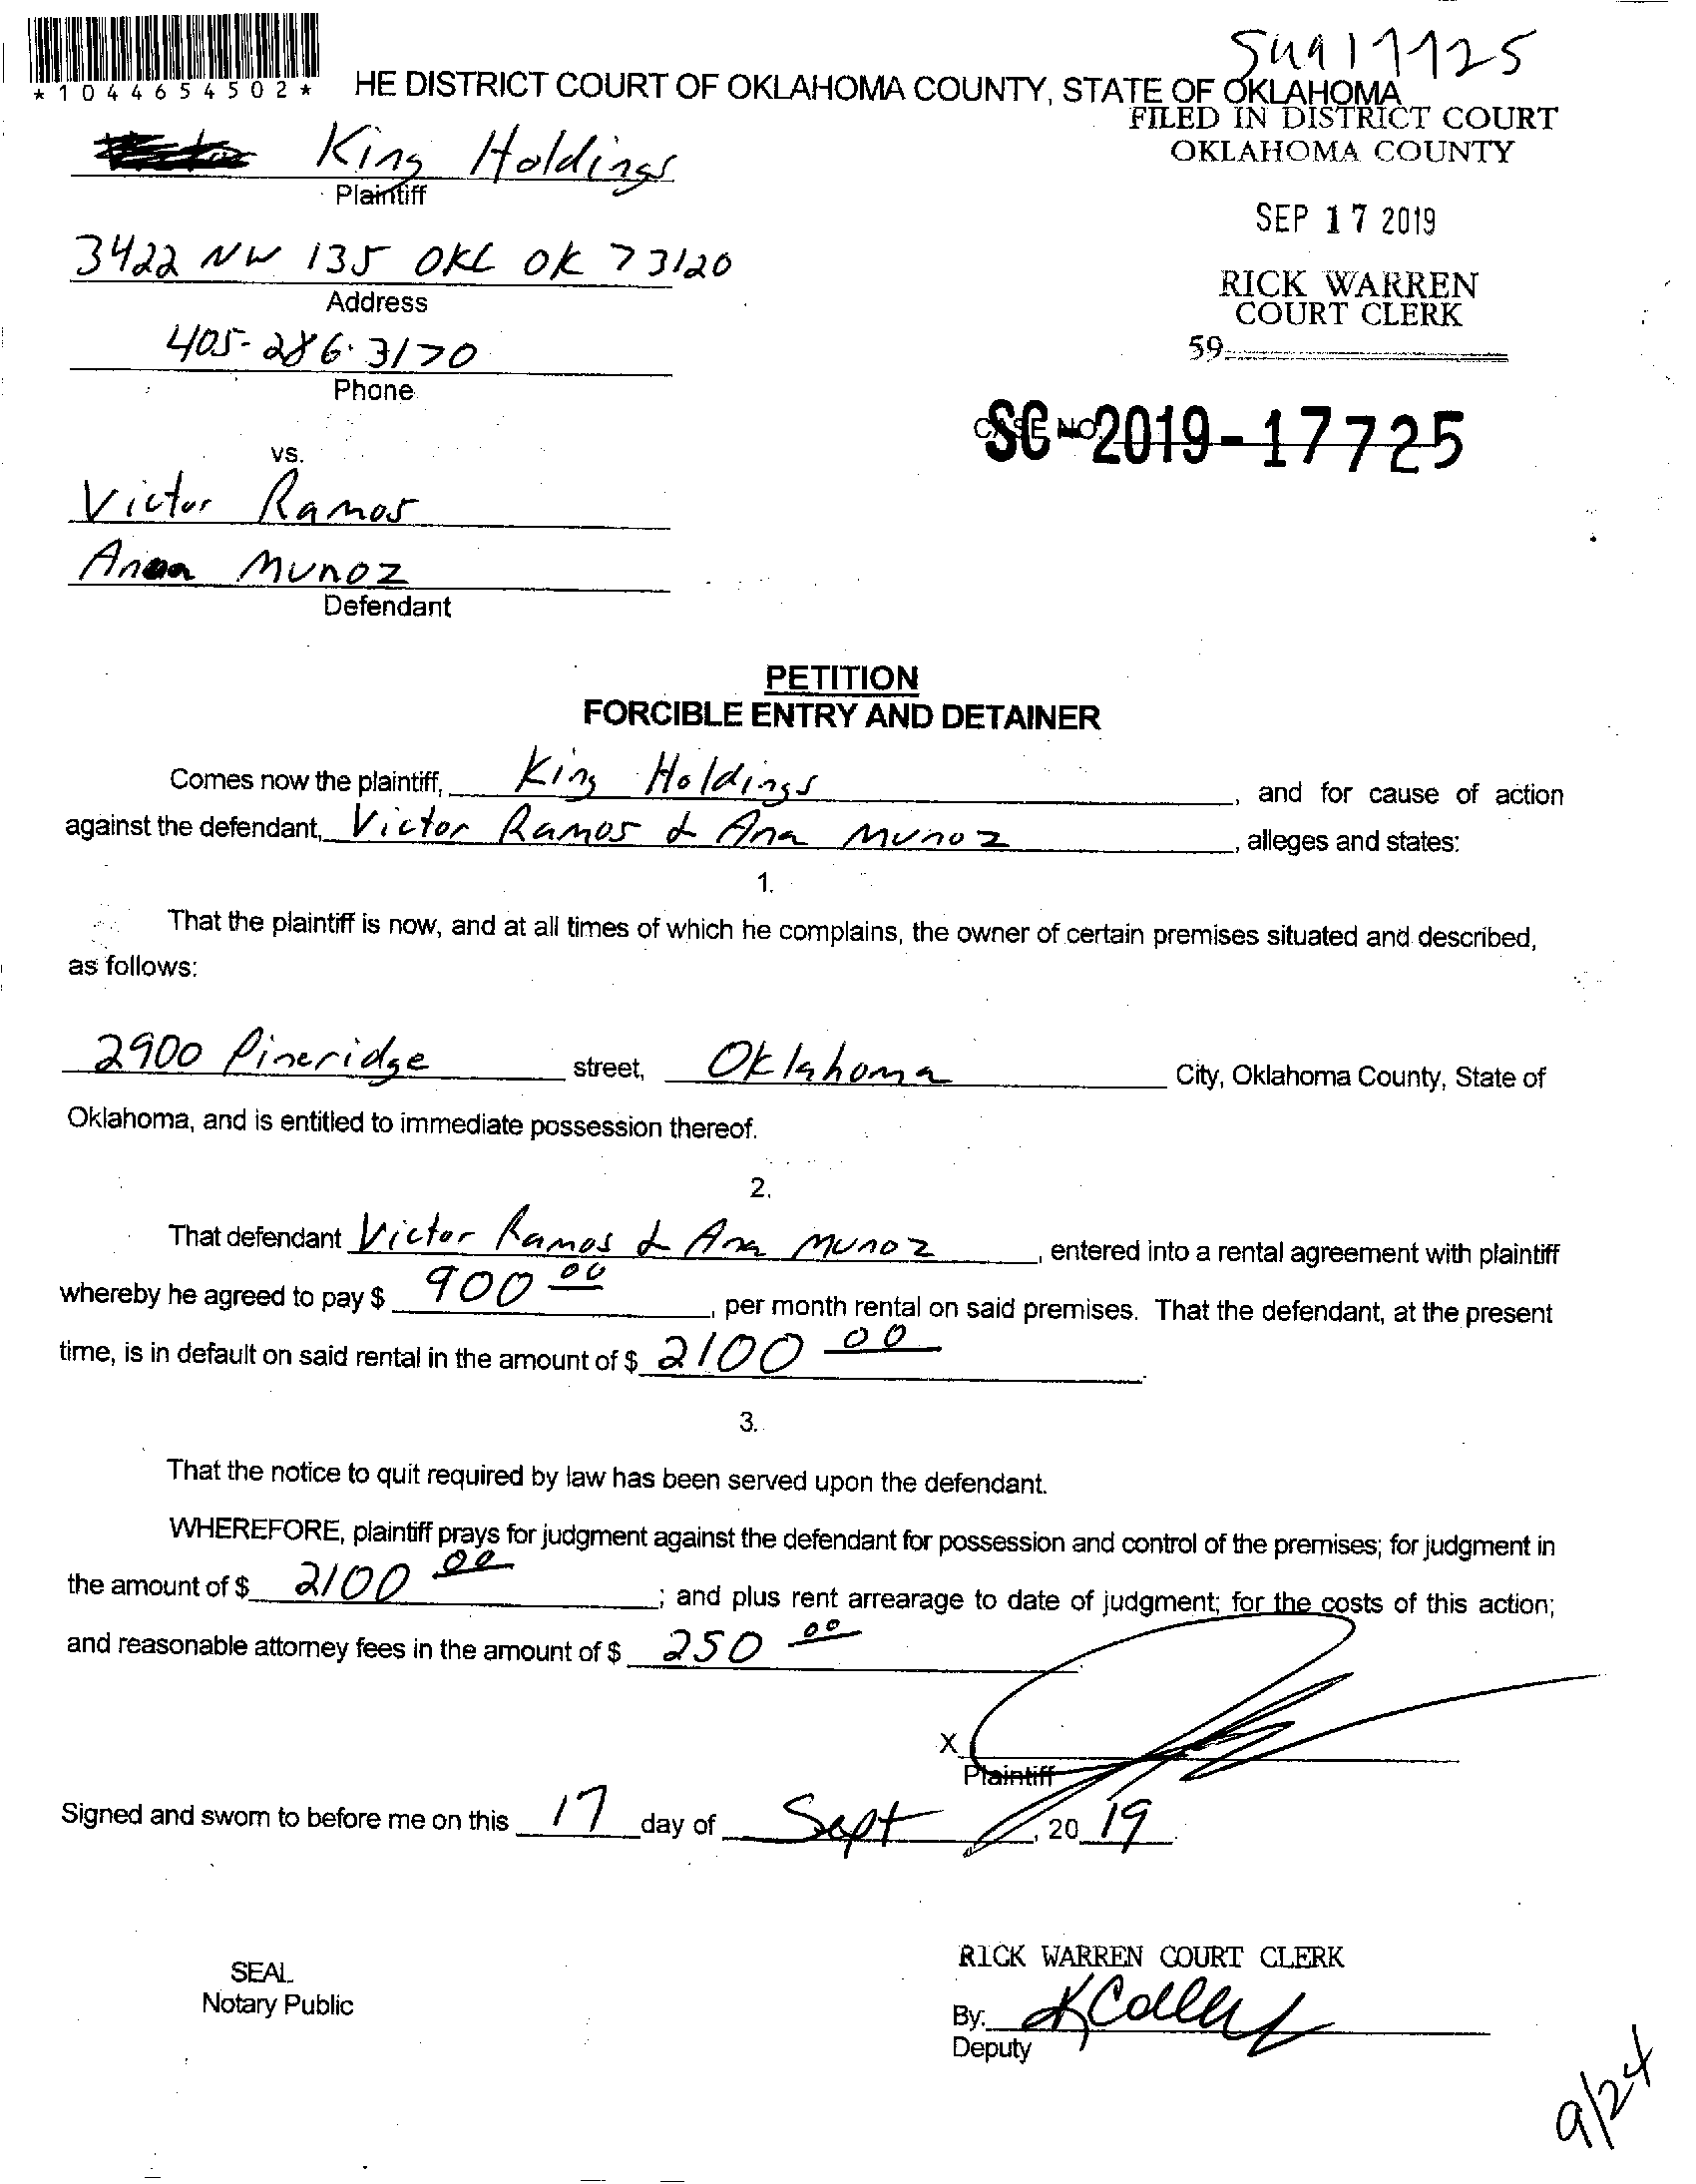 *1044654502*
HE DISTRICT COURT OF OKLAHOMA COUNTY, STATE OF OKLAHOMA
FILED IN DISTRICT COURT
OKLAHOMA COUNTY
King Holdings
Plaintiff
SEP 17 2019
3422 NW 135 OKC OK 73120
Address
RICK WARREN
COURT CLERK
405-286-3170
59
Phone
CASE NO.
SC-2019-17725
vs.
Victor Ramos
Anaa Munoz
Defendant
PETITION
FORCIBLE ENTRY AND DETAINER
Comes now the plaintiff, King Holdings, and for cause of action
against the defendant, Victor Ramos & Ana Munoz, alleges and states:
1.
That the plaintiff is now, and at all times of which he complains, the owner of certain premises situated and described,
as follows:
2900 Pineridge street, Oklahoma City, Oklahoma County, State of
Oklahoma, and is entitled to immediate possession thereof.
2.
That defendant Victor Ramos & Ana Munoz, entered into a rental agreement with plaintiff
whereby he agreed to pay $ 900 00, per month rental on said premises. That the defendant, at the present
time, is in default on said rental in the amount of $ 2100 00.
3.
That the notice to quit required by law has been served upon the defendant.
WHEREFORE, plaintiff prays for judgment against the defendant for possession and control of the premises; for judgment in
the amount of $ 2100 00; and plus rent arrearage to date of judgment; for the costs of this action;
and reasonable attorney fees in the amount of $ 250 00.
X
Plaintiff
Signed and sworn to before me on this 17 day of Sept, 20 19.
SEAL
Notary Public
RICK WARREN COURT CLERK
By:
Deputy
9/24